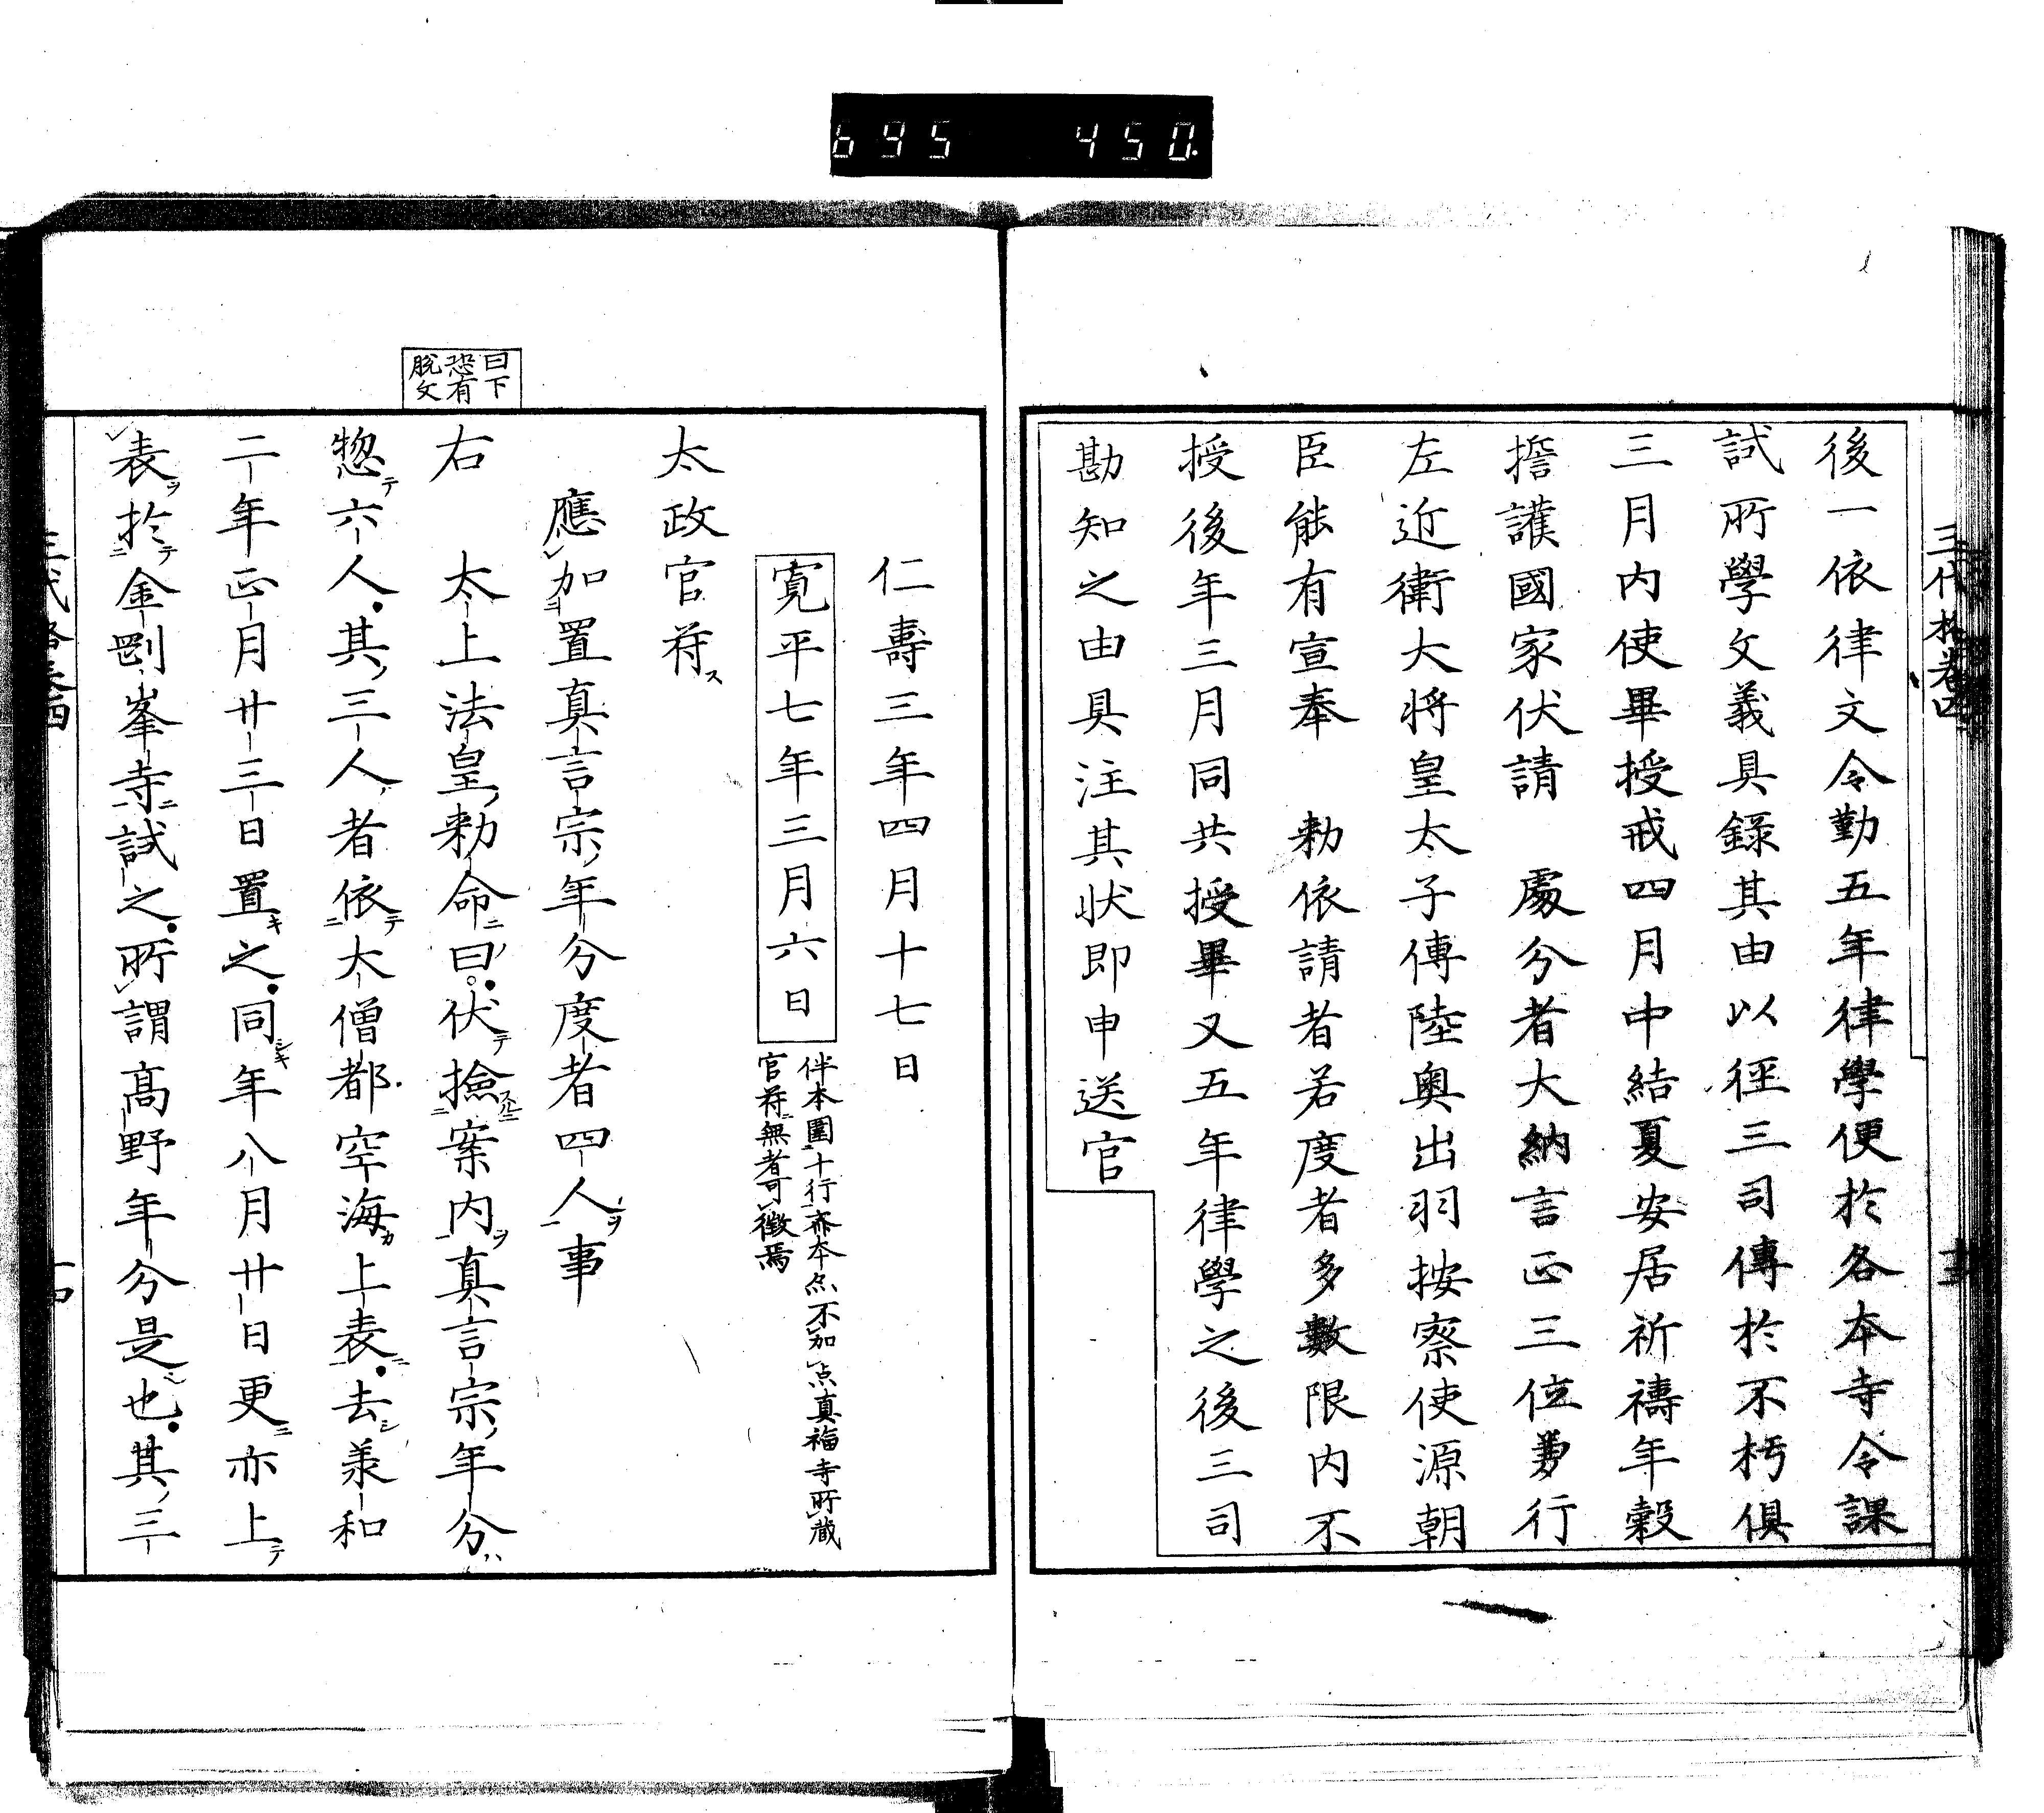 695 450
三代格卷四
後一依律文令勤五年律學便於各本寺令課
試所學文義具録其由以徑三司傳於不朽俱
三月内使畢授戒四月中結夏安居祈禱年穀
擔護國家伏請　處分者大納言正三位兼行
左近衛大将皇太子傅陸奥出羽按察使源朝
臣能有宣奉　勅依請者若度者多數限内不
授後年三月同共授畢又五年律學之後三司
勘知之由具注其状即申送官
仁壽三年四月十七日
寛平七年三月六日
伴本圍十行, 斎本点不加点真福寺所蔵
官符ニ無者可徴焉
太政官符ス
應加置真言宗年分度者四人事
曰下
恐有
脱文
右　太上法皇勅命曰伏撿案内真言宗年分
惣六人其三人者依大僧都空海上表去羕和
二年正月廿三日置之同年八月廿日更亦上
表於金剛峯寺試之所謂高野年分是也其三
三代格卷四